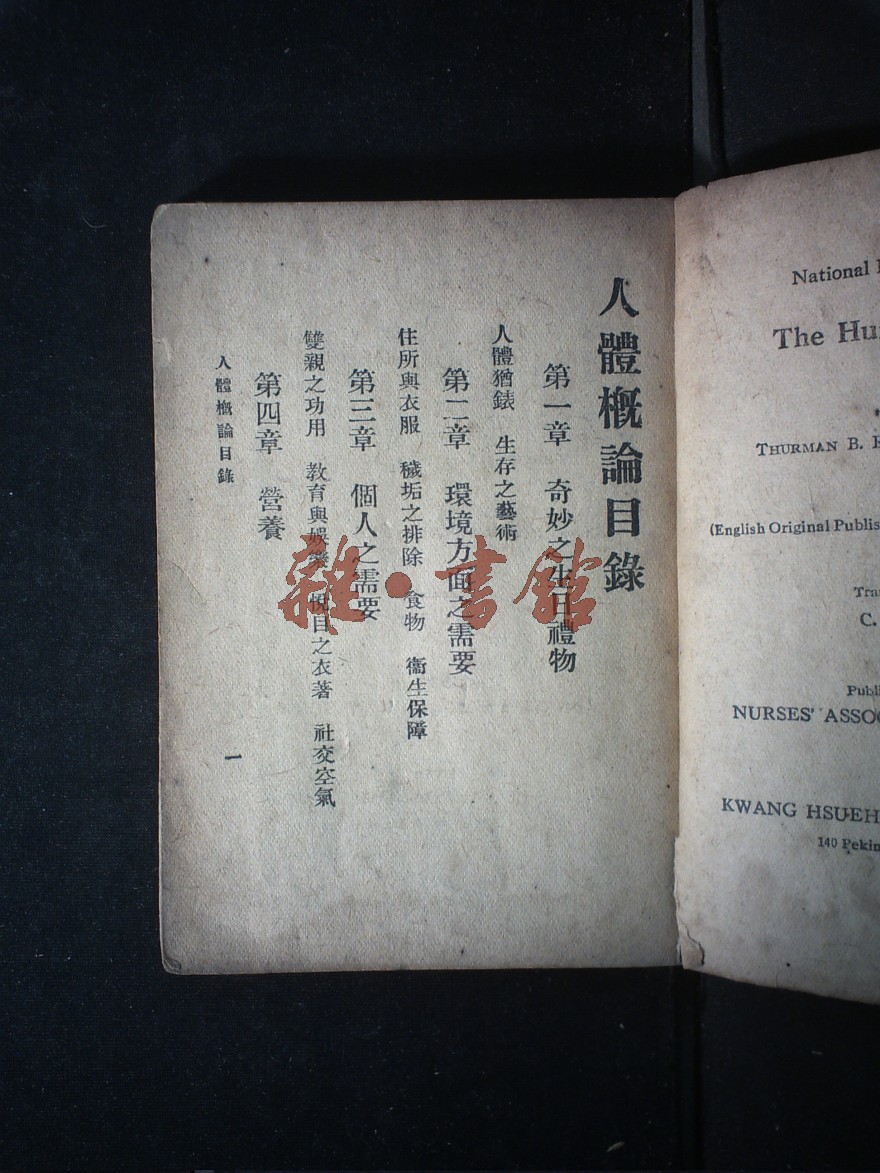 人體概論目錄
第一章 奇妙之生日禮物
人體猶錶 生存之藝術
第二章 環境方面之需要
住所與衣服 穢垢之排除 食物 衞生保障
第三章 個人之需要
雙親之功用 教育與娛樂 悅目之衣著 社交空氣
第四章 營養
人體概論目錄 一
雜·書館
National
The Hu
THURMAN B.
(English Original Publis
Tra
C.
Publi
NURSES' ASSOC
KWANG HSUEH
140 Pekin